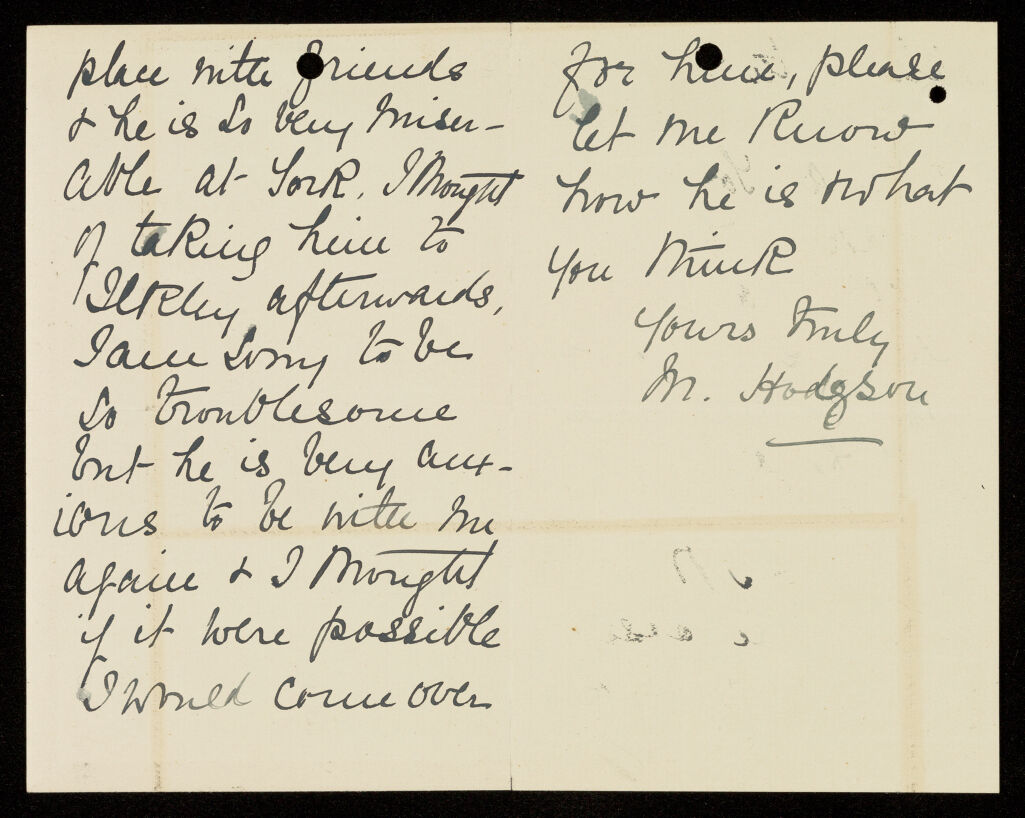 place with friends
& he is so very miser-
able at York. I thought
of taking him to
Ilkley afterwards,
I am sorry to be
so troublesome
but he is very anx-
ious to be with me
again & I thought
if it were possible
I would come over
for him, please
let me know
how he is & what
you think
Yours truly
M. Hodgson